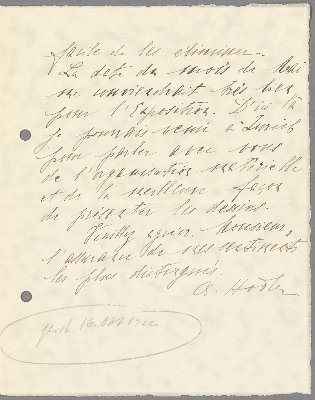 facile de les éliminer.
La date du mois de Mai
me conviendrait très bien
pour l'Exposition. D'ici là
je pourrais venir à Zurich
pour parler avec vous
de l'organisation matérielle
et de la meilleure façon
de présenter les dessins.
Veuillez agréer, Monsieur,
l'assurance de mes sentiments
les plus distingués.
Hodler